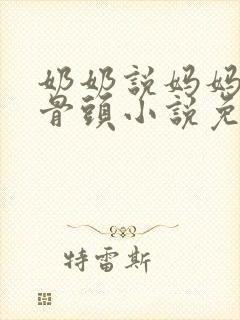 奶奶說媽媽
骨頭小說免
特雷斯